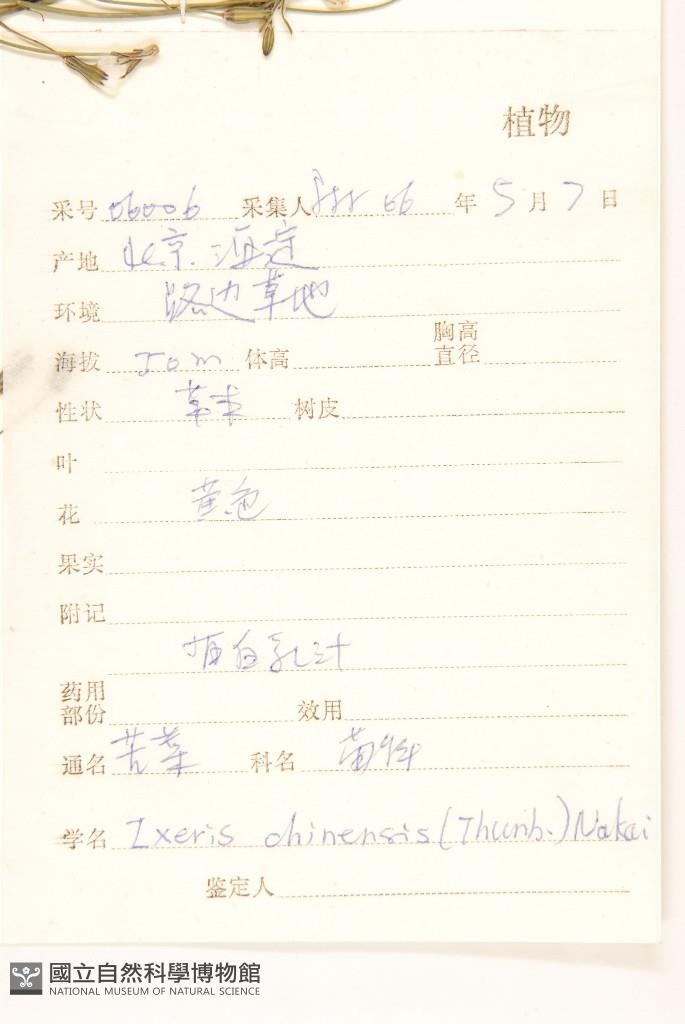 植物
采号 06006 采集人 66 年 5 月 7 日
产地 北京.海淀
环境 路边草地
海拔 50m 体高 胸高直径
性状 草本 树皮
叶
花 黄色
果实
附记
有白乳汁
药用部份 效用
通名 苦菜 科名 菊科
学名 Ixeris chinensis (Thunb.) Nakai
鉴定人
國立自然科學博物館
NATIONAL MUSEUM OF NATURAL SCIENCE